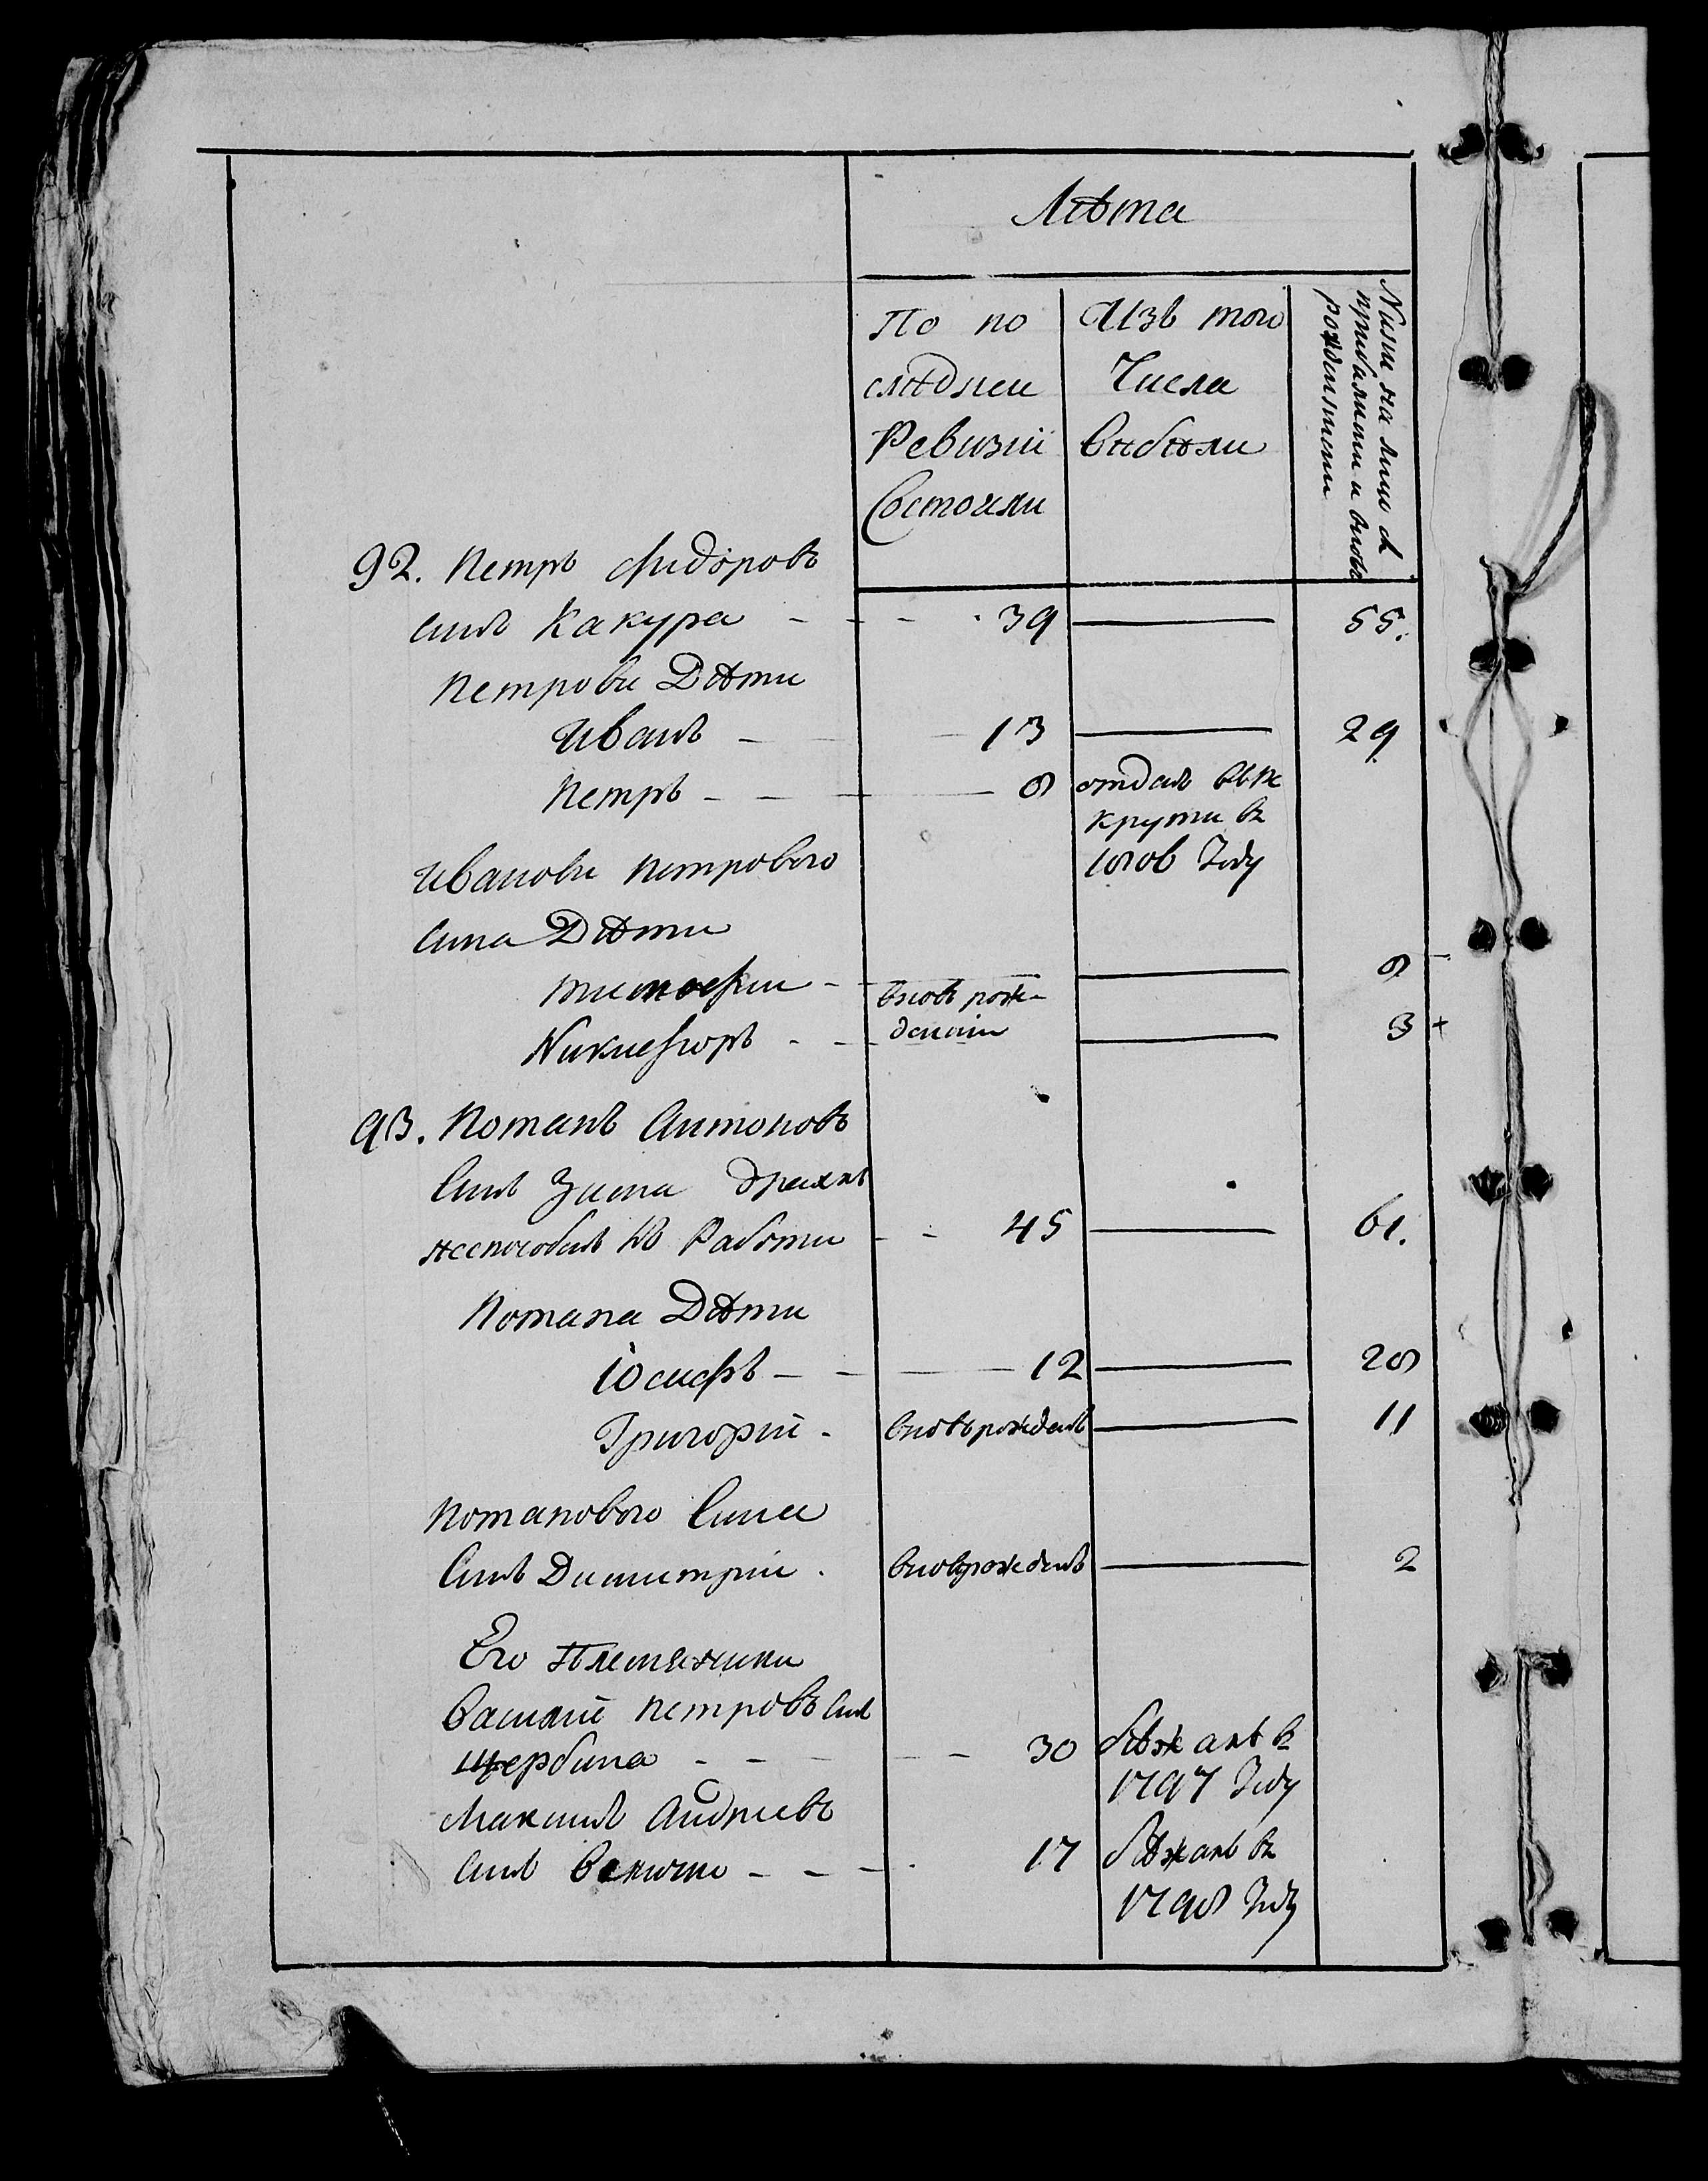 Лѣта
По по
слѣднеи
Ревизіи
Состояли
Изъ того
Числа
выбыли
Ныне на лицо с
прибылыми и вновь
рожденными
92. Петръ Сидоровъ
сынъ Какура - - - 39 55.
Петровы Дѣти
Иванъ - 13 29
Петръ - - - 8 отданъ врѣ
круты в
1808 Году
Ивановы Петрового
Сына Дѣти
тимофеи - 8
вновь рож-
Никифоръ - - дении 3 +
93. Потапъ Антоновъ
Сынъ Зима дряхлъ
неспособенъ Къ Работы - - 45 61.
Потапа Дѣти
Іосифъ - - 12 28
Григорій - вновьрожденъ 11
Потапового Сына
Сынъ Димитрии . вновьрожденъ 2
Его Племяники
Василій Петровъ Сынъ
Щербина - - - 30 бѣжалъ в
1797 Году
Максимъ Андреевъ
Сынъ - - - 17 бѣжалъ в
1798 Году